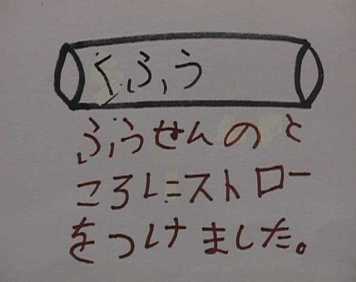 くふう
ふうせんのと
ころにストロー
をつけました。